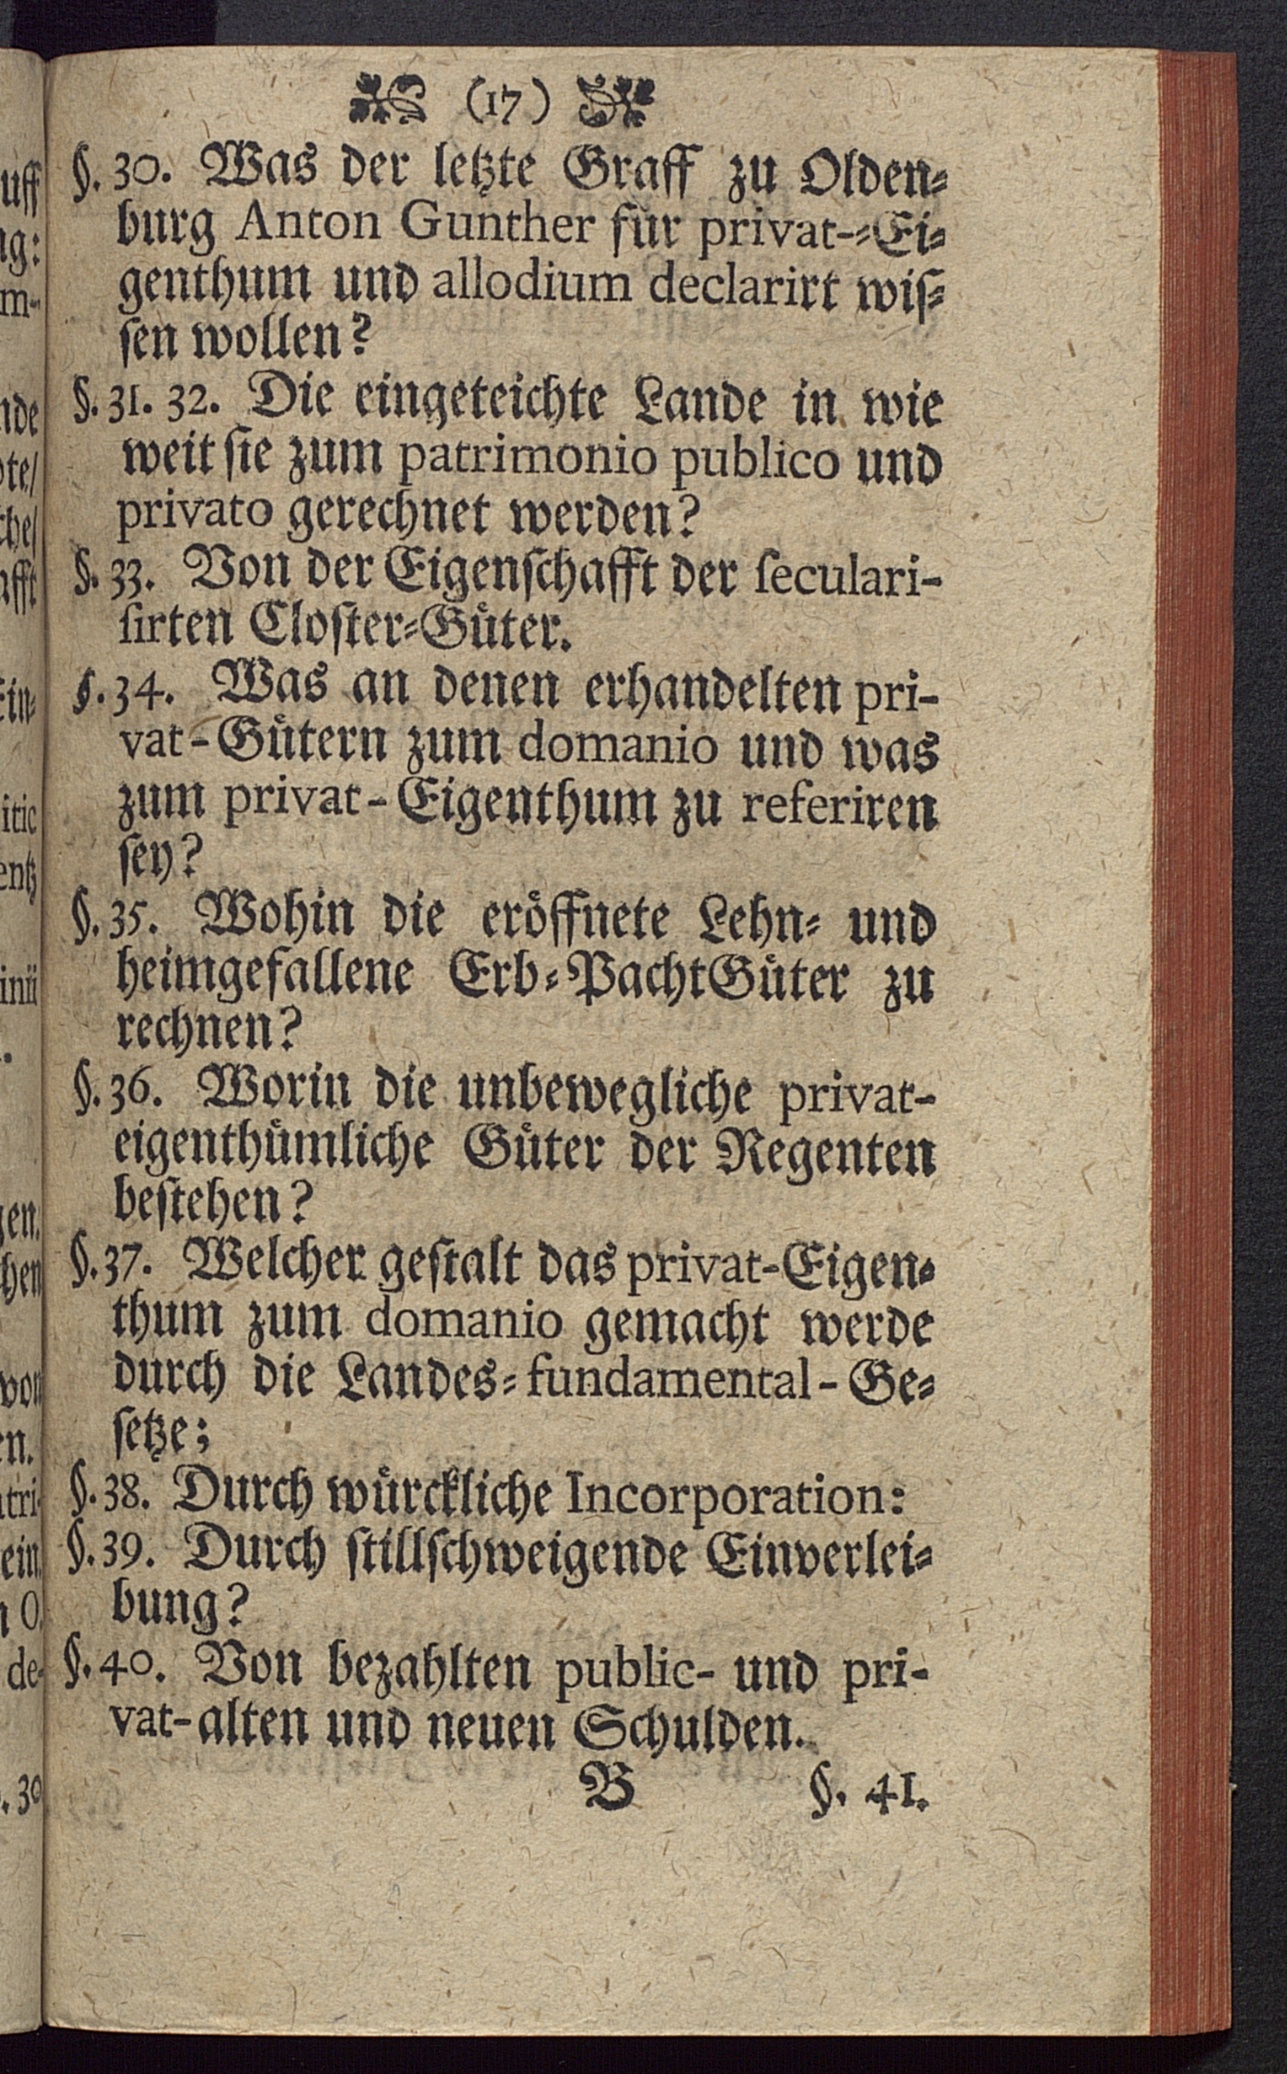 (17)
§. 30. Was der letzte Graff zu Olden-
burg Anton Gunther für privat--Ei-
genthum und allodium declarirt wiſ-
ſen wollen?
§. 31. 32. Die eingeteichte Lande in wie
weit ſie zum patrimonio publico und
privato gerechnet werden?
§. 33. Von der Eigenſchafft der ſeculari-
ſirten Cloſter-Güter.
§. 34. Was an denen erhandelten pri-
vat-Gütern zum domanio und was
zum privat-Eigenthum zu referiren
ſey?
§. 35. Wohin die eröffnete Lehn- und
heimgefallene Erb-PachtGüter zu
rechnen?
§. 36. Worin die unbewegliche privat-
eigenthümliche Güter der Regenten
beſtehen?
§. 37. Welcher geſtalt das privat-Eigen-
thum zum domanio gemacht werde
durch die Landes-fundamental-Ge-
ſetze;
§. 38. Durch würckliche Incorporation:
§. 39. Durch ſtillſchweigende Einverlei-
bung?
§. 40. Von bezahlten public- und pri-
vat-alten und neuen Schulden.
B §. 41.